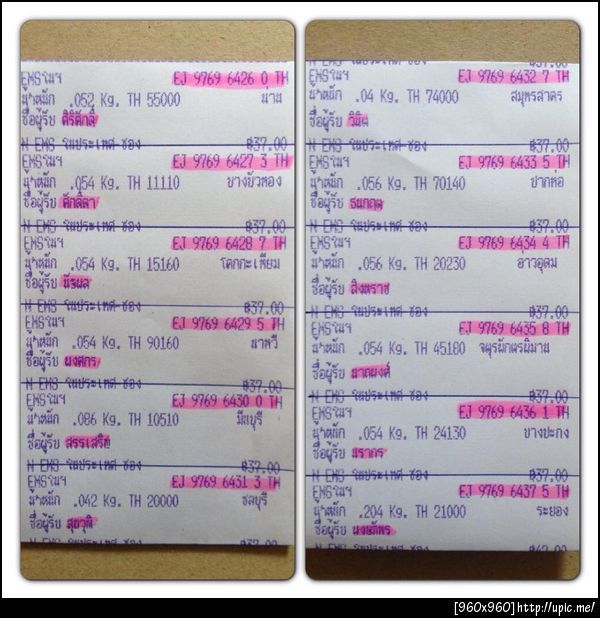 EMSในฯ EJ 9769 6426 0 TH
น้ำหนัก .052 Kg. TH 55000 น่าน
ชื่อผู้รับ ศิริศักดิ์
N EMS ในประเทศ ซอง ฿37.00
EMSในฯ EJ 9769 6427 3 TH
น้ำหนัก .054 Kg. TH 11110 บางบัวทอง
ชื่อผู้รับ
N EMS ในประเทศ ซอง ฿37.00
EMSในฯ EJ 9769 6428 7 TH
น้ำหนัก .054 Kg. TH 15160 โคกกะเทียม
ชื่อผู้รับ
N EMS ในประเทศ ซอง ฿37.00
EMSในฯ EJ 9769 6429 5 TH
น้ำหนัก .054 Kg. TH 90160 นาทวี
ชื่อผู้รับ
N EMS ในประเทศ ซอง ฿37.00
EMSในฯ EJ 9769 6430 0 TH
น้ำหนัก .086 Kg. TH 10510 มีนบุรี
ชื่อผู้รับ สรรเสริญ
N EMS ในประเทศ ซอง ฿37.00
EMSในฯ EJ 9769 6431 3 TH
น้ำหนัก .042 Kg. TH 20000 ชลบุรี
ชื่อผู้รับ
฿37.00
N EMS ในประเทศ ซอง ฿37.00
EMSในฯ EJ 9769 6432 7 TH
น้ำหนัก .04 Kg. TH 74000 สมุทรสาคร
ชื่อผู้รับ
N EMS ในประเทศ ซอง ฿37.00
EMSในฯ EJ 9769 6433 5 TH
น้ำหนัก .056 Kg. TH 70140 ปากท่อ
ชื่อผู้รับ ธนกฤต
N EMS ในประเทศ ซอง ฿37.00
EMSในฯ EJ 9769 6434 4 TH
น้ำหนัก .056 Kg. TH 20230 อ่าวอุดม
ชื่อผู้รับ สิงหราช
N EMS ในประเทศ ซอง ฿37.00
EMSในฯ EJ 9769 6435 8 TH
น้ำหนัก .054 Kg. TH 45180 จตุรพักตรพิมาน
ชื่อผู้รับ
N EMS ในประเทศ ซอง ฿37.00
EMSในฯ EJ 9769 6436 1 TH
น้ำหนัก .054 Kg. TH 24130 บางปะกง
ชื่อผู้รับ
N EMS ในประเทศ ซอง ฿37.00
EMSในฯ EJ 9769 6437 5 TH
น้ำหนัก .204 Kg. TH 21000 ระยอง
ชื่อผู้รับ
N EMS ในประเทศ ซอง ฿42.00
[960x960] http://upic.me/